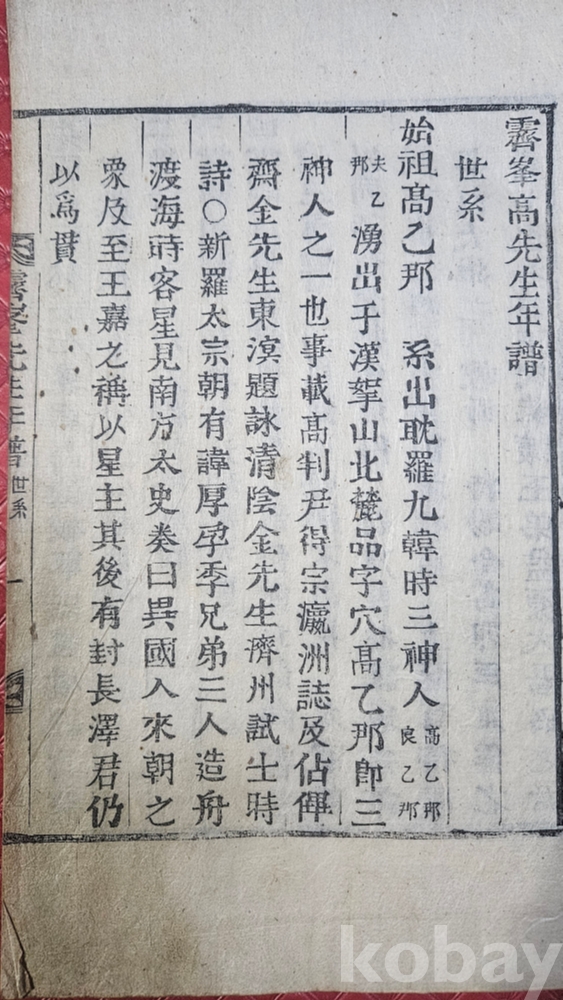 霽峯高先生年譜
世系
始祖髙乙那 系出耽羅九韓時三神人髙乙那良乙那
夫乙那湧出于漢拏山北麓品字穴髙乙那即三
神人之一也事載髙判尹得宗瀛洲誌及佔僤
齋金先生東溟題詠清陰金先生濟州試士時
詩○新羅太宗朝有諱厚孕季兄弟三人造舟
渡海時客星見南方太史奏曰異國人來朝之
象及至王嘉之稱以星主其後有封長澤君仍
以爲貫
霽峯先生年譜 世系 一
kobay